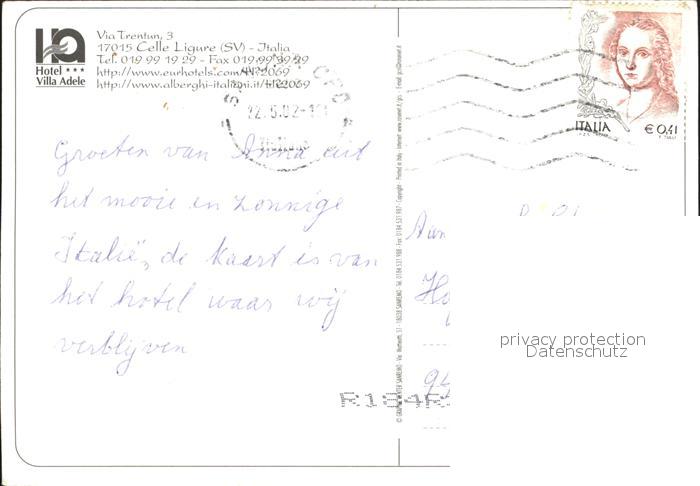 Via Trentun, 3
17015 Celle Ligure (SV) - Italia
Tel. 019 99 19 29 - Fax 019 99
Hotel ***
Villa Adele
http://www.eurhotels.com/
http://www.alberghi-italiani.it/
22.5.02
Groeten van Anna uit
het mooie en zonnige
Italië, de kaart is van
het hotel waar wij
verblijven
ITALIA € 0,41
Aan
privacy protection
Datenschutz